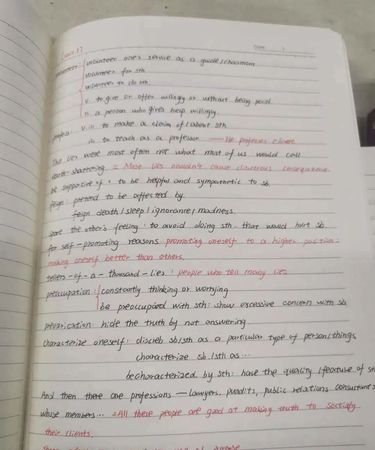 volunteer: volunteer one's service as a guide/chairman
volunteer for sth
volunteer to do sth
v. to give or offer willingly or without being paid
n. a person who gives help willingly.
profess: v. to make a claim of/about sth
to teach as a professor. — He professes chinese
The lies were most often not what most of us would call
earth-shattering. = Most lies wouldn't cause disastrous consequence.
be supportive of = to be helpful and sympathetic to sb
feign: pretend to be affected by.
feign death/sleep/ignorance/madness.
spare the other's feeling: to avoid doing sth that would hurt sb
for self-promoting reasons promoting oneself to a higher position;
making oneself better than others.
tellers-of-a-thousand-lies: people who tell many lies
preoccupation: constantly thinking or worrying
be preoccupied with sth: show excessive concern with sb
prevarication: hide the truth by not answering
characterize oneself: describ sb/sth as a particular type of person/things
characterize sb/sth as...
be characterized by sth: have the quality/feature of
And then there are professions — lawyers, pundits, public relations consultants
whose members... = All these people are good at making truth to sactisfy
their clients.